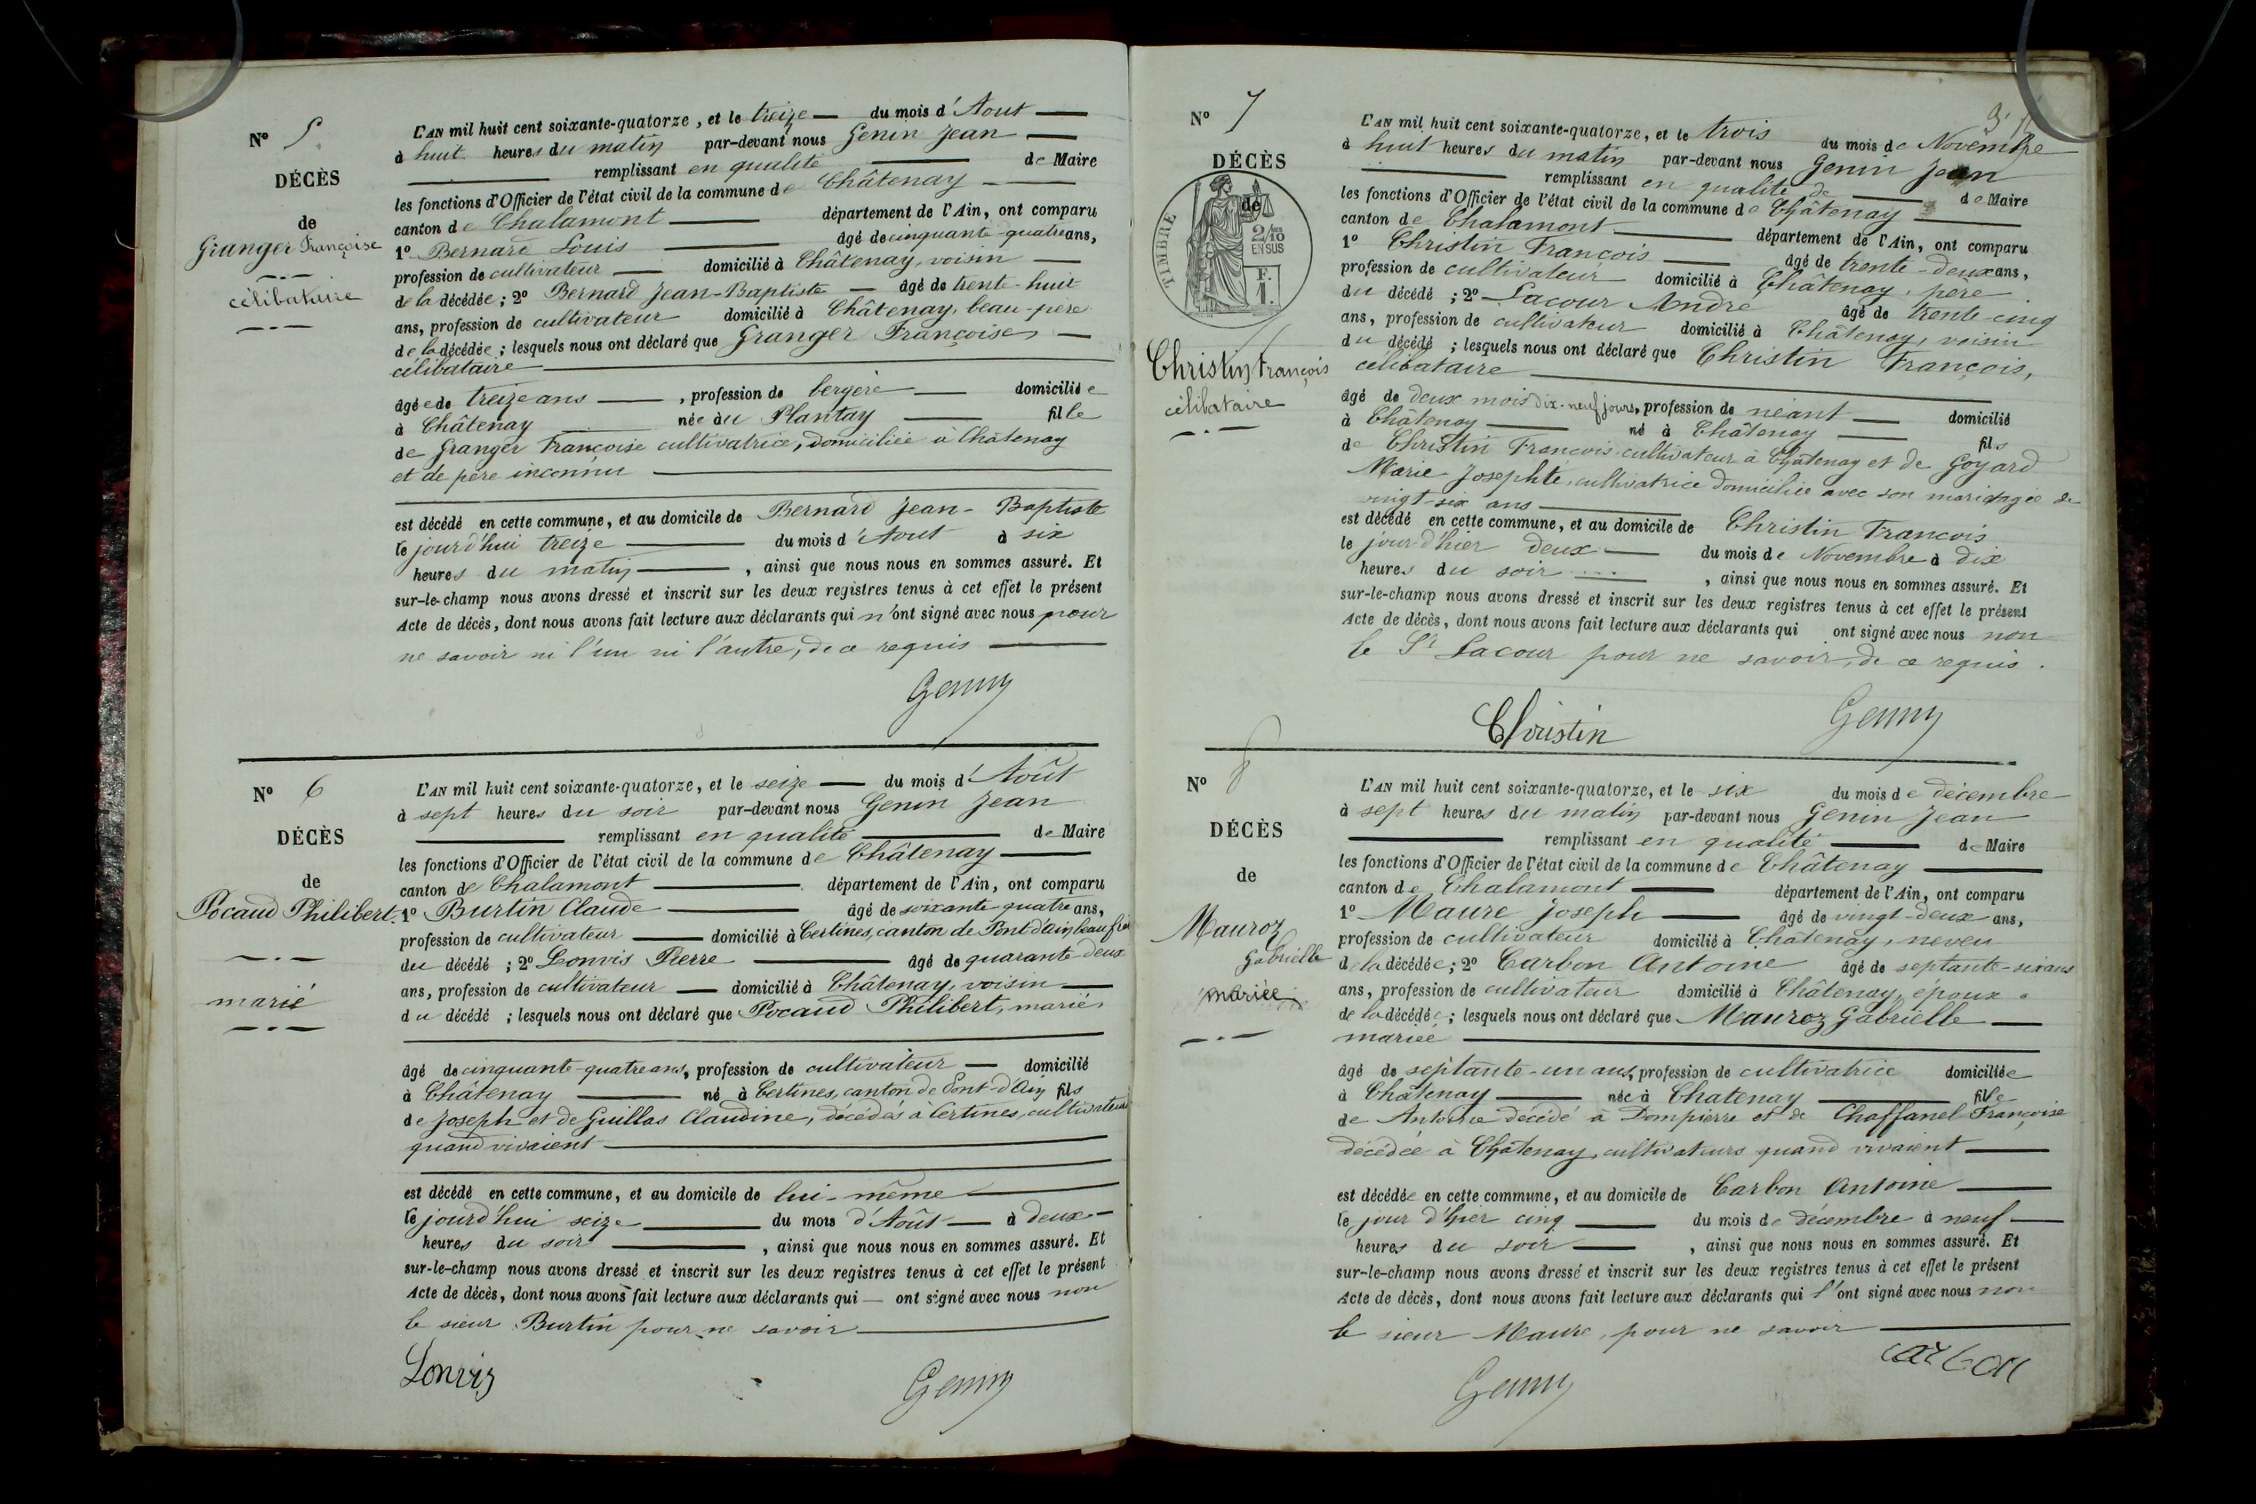 N° 5
DÉCÈS
de
Granger Françoise
célibataire
L'AN mil huit cent soixante-quatorze, et le treize du mois d'Aout
à huit heures du matin par-devant nous Genin Jean
remplissant en qualité de Maire
les fonctions d'Officier de l'état civil de la commune de Châtenay
canton de Chalamont département de l'Ain, ont comparu
1° Bernard Louis âgé de cinquante-quatre ans,
profession de cultivateur domicilié à Châtenay, voisin
de la décédée ; 2° Bernard Jean-Baptiste âgé de trente-huit
ans, profession de cultivateur domicilié à Châtenay, beau-père
de la décédée ; lesquels nous ont déclaré que Granger Françoise,
célibataire
âgée de treize ans, profession de bergère domiciliée
à Châtenay née au Plantay fille
de Granger Françoise cultivatrice, domiciliée à Châtenay
et de père inconnu
est décédé en cette commune, et au domicile de Bernard Jean-Baptiste
le jourd'hui treize du mois d'Aout à six
heures du matin, ainsi que nous nous en sommes assuré. Et
sur-le-champ nous avons dressé et inscrit sur les deux registres tenus à cet effet le présent
Acte de décès, dont nous avons fait lecture aux déclarants qui n'ont signé avec nous pour
ne savoir ni l'un ni l'autre, de ce requis
Genin
N° 6
DÉCÈS
de
Pocaud Philibert
marié
L'AN mil huit cent soixante-quatorze, et le seize du mois d'Août
à sept heures du soir par-devant nous Genin Jean
remplissant en qualité de Maire
les fonctions d'Officier de l'état civil de la commune de Châtenay
canton de Chalamont département de l'Ain, ont comparu
1° Burtin Claude âgé de soixante-quatre ans,
profession de cultivateur domicilié à Certines, canton de Pont d'ain, beau frère
du décédé ; 2° Lonvis Pierre âgé de quarante-deux
ans, profession de cultivateur domicilié à Châtenay, voisin
du décédé ; lesquels nous ont déclaré que Pocaud Philibert, marié
âgé de cinquante-quatre ans, profession de cultivateur domicilié
à Châtenay né à Certines, canton de Pont-d'Ain fils
de Joseph et de Guillas Claudine, décédés à Certines, cultivateurs
quand vivaient
est décédé en cette commune, et au domicile de lui-même
le jourd'hui seize du mois d'Août à deux
heures du soir, ainsi que nous nous en sommes assuré. Et
sur-le-champ nous avons dressé et inscrit sur les deux registres tenus à cet effet le présent
Acte de décès, dont nous avons fait lecture aux déclarants qui ont signé avec nous non
le sieur Burtin pour ne savoir
Lonvis Genin
N° 7
DÉCÈS
de
TIMBRE
2/10 EN SUS
F. 1.
Christin François
célibataire
L'AN mil huit cent soixante-quatorze, et le trois du mois de Novembre
à huit heures du matin par-devant nous Genin Jean
remplissant en qualité de de Maire
les fonctions d'Officier de l'état civil de la commune de Châtenay
canton de Chalamont département de l'Ain, ont comparu
1° Christin François âgé de trente-deux ans,
profession de cultivateur domicilié à Châtenay, père
du décédé ; 2° Lacour André âgé de trente-cinq
ans, profession de cultivateur domicilié à Châtenay, voisin
du décédé ; lesquels nous ont déclaré que Christin François,
célibataire
âgé de deux mois dix-neuf jours, profession de néant domicilié
à Châtenay né à Châtenay fils
de Christin François cultivateur à Châtenay et de Goyard
Marie Josephte, cultivatrice domiciliée avec son mari âgée de
vingt-six ans
est décédé en cette commune, et au domicile de Christin François
le jour d'hier deux du mois de Novembre à dix
heures du soir, ainsi que nous nous en sommes assuré. Et
sur-le-champ nous avons dressé et inscrit sur les deux registres tenus à cet effet le présent
Acte de décès, dont nous avons fait lecture aux déclarants qui ont signé avec nous non
le Sr Lacour pour ne savoir, de ce requis.
Christin Genin
N° 8
DÉCÈS
de
Mauroz
Gabrielle
mariée
L'AN mil huit cent soixante-quatorze, et le six du mois de décembre
à sept heures du matin par-devant nous Genin Jean
remplissant en qualité de Maire
les fonctions d'Officier de l'état civil de la commune de Châtenay
canton de Chalamont département de l'Ain, ont comparu
1° Maure Joseph âgé de vingt-deux ans,
profession de cultivateur domicilié à Châtenay, neveu
de la décédée ; 2° Carbon Antoine âgé de septante-six ans
ans, profession de cultivateur domicilié à Châtenay, époux
de la décédée ; lesquels nous ont déclaré que Mauroz Gabrielle
mariée
âgé de septante-un ans, profession de cultivatrice domiciliée
à Châtenay née à Chatenay fille
de Antoine décédé à Dompierre et de Chaffanel Françoise
décédée à Châtenay, cultivateurs quand vivaient
est décédée en cette commune, et au domicile de Carbon Antoine
le jour d'hier cinq du mois de décembre à neuf
heures du soir, ainsi que nous nous en sommes assuré. Et
sur-le-champ nous avons dressé et inscrit sur les deux registres tenus à cet effet le présent
Acte de décès, dont nous avons fait lecture aux déclarants qui l'ont signé avec nous non
le sieur Maure, pour ne savoir
carbon
Genin